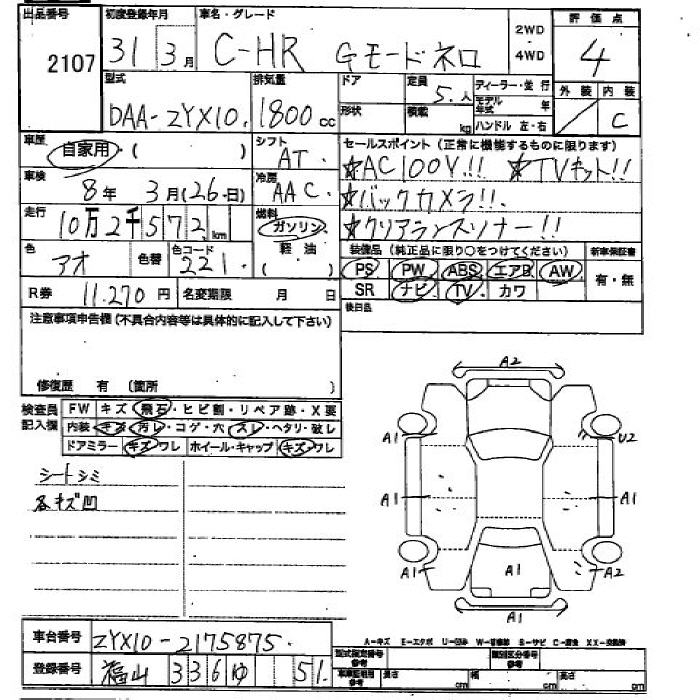 出品番号 初度登録年月 車名・グレード 2WD 4WD 評価点
2107 31 3月 C-HR Gモード ネロ 4
型式 排気量 ドア 定員 ディーラー・並行 外装 内装
DAA-ZYX10. 1800cc 形状 積載 kg 5.人 モデル年式 年 ハンドル 左・右 C
車歴 シフト セールスポイント(正常に機能するものに限ります)
自家用・( ) AT. ☆AC100V!!! ☆TVキット!!
車検 冷房 ☆バックカメラ!!.
8年 3月(26日) AAC. ☆クリアランスソナー!!
走行 燃料
10万2千572km ガソリン 軽油 ( )
色 色替 色コード 装備品(純正品に限り○をつけてください) 新車保証書
アオ 221. PS PW ABS エアB AW 有・無
SR ナビ TV. カワ
R券 11.270円 名変期限 月 日 後日品
注意事項申告欄(不具合内容等は具体的に記入して下さい)
修復歴 有 (箇所 )
検査員記入欄 FW キズ・飛石・ヒビ割・リペア跡・X要
内装 キズ・汚レ・コゲ・穴・スレ・ヘタリ・破レ
ドアミラー キズ ワレ ホイール・キャップ キズ ワレ
シートシミ
各キズ凹
A2
A1 U2
A1 A1
A1 A1 A2
A1
A-キズ E-エクボ U-凹み
車台番号 ZYX10-2175875.
登録番号 福山 336 ゆ 51.
型式指定番号 参考 類別区分番号 参考
長さ cm 幅 cm 高さ cm